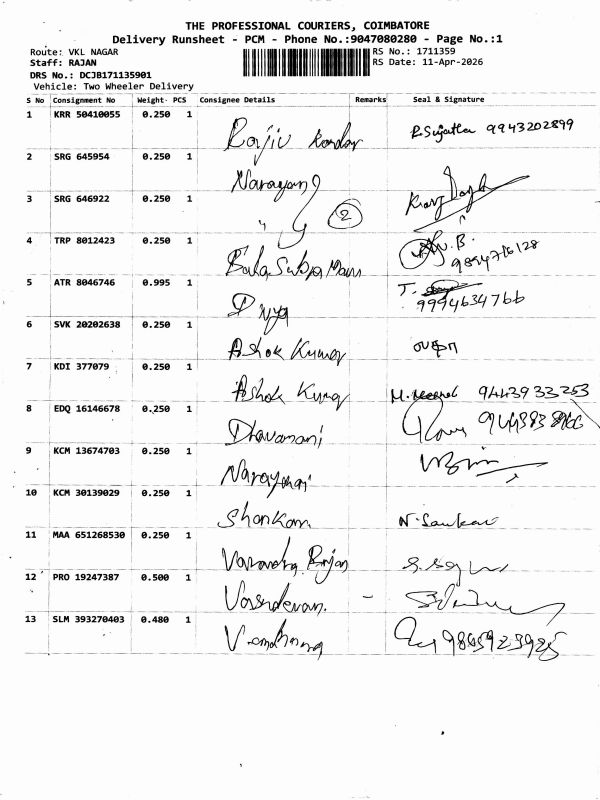 THE PROFESSIONAL COURIERS, COIMBATORE
Delivery Runsheet - PCM - Phone No.:9047080280 - Page No.:1
Route: VKL NAGAR RS No.: 1711359
Staff: RAJAN RS Date: 11-Apr-2026
DRS No.: DCJB171135901
Vehicle: Two Wheeler Delivery
S No Consignment No Weight- PCS Consignee Details Remarks Seal & Signature
1 KRR 50410055 0.250 1 R.Sujatha 9943202899
2 SRG 645954 0.250 1 Narayan
3 SRG 646922 0.250 1 " 2
4 TRP 8012423 0.250 1 Bala
5 ATR 8046746 0.995 1 Divya 9994634766
6 SVK 20202638 0.250 1 Ashok Kumar
7 KDI 377079 0.250 1 Ashok 9443933253
8 EDQ 16146678 0.250 1 Dhavamani
9 KCM 13674703 0.250 1
10 KCM 30139029 0.250 1 Shankar N. Sankar
11 MAA 651268530 0.250 1
12 PRO 19247387 0.500 1 Vasudevan. -
13 SLM 393270403 0.480 1